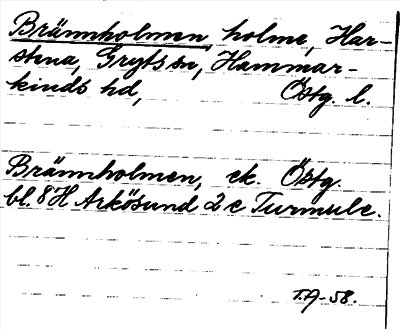 Brännholmen, holme, Har-
stena, Gryts sn, Hammar-
kinds hd, Östg. l.
Brännholmen, ek. Östg.
bl. 8 H Arkösund 2 c Turmulc.
T.A-58.